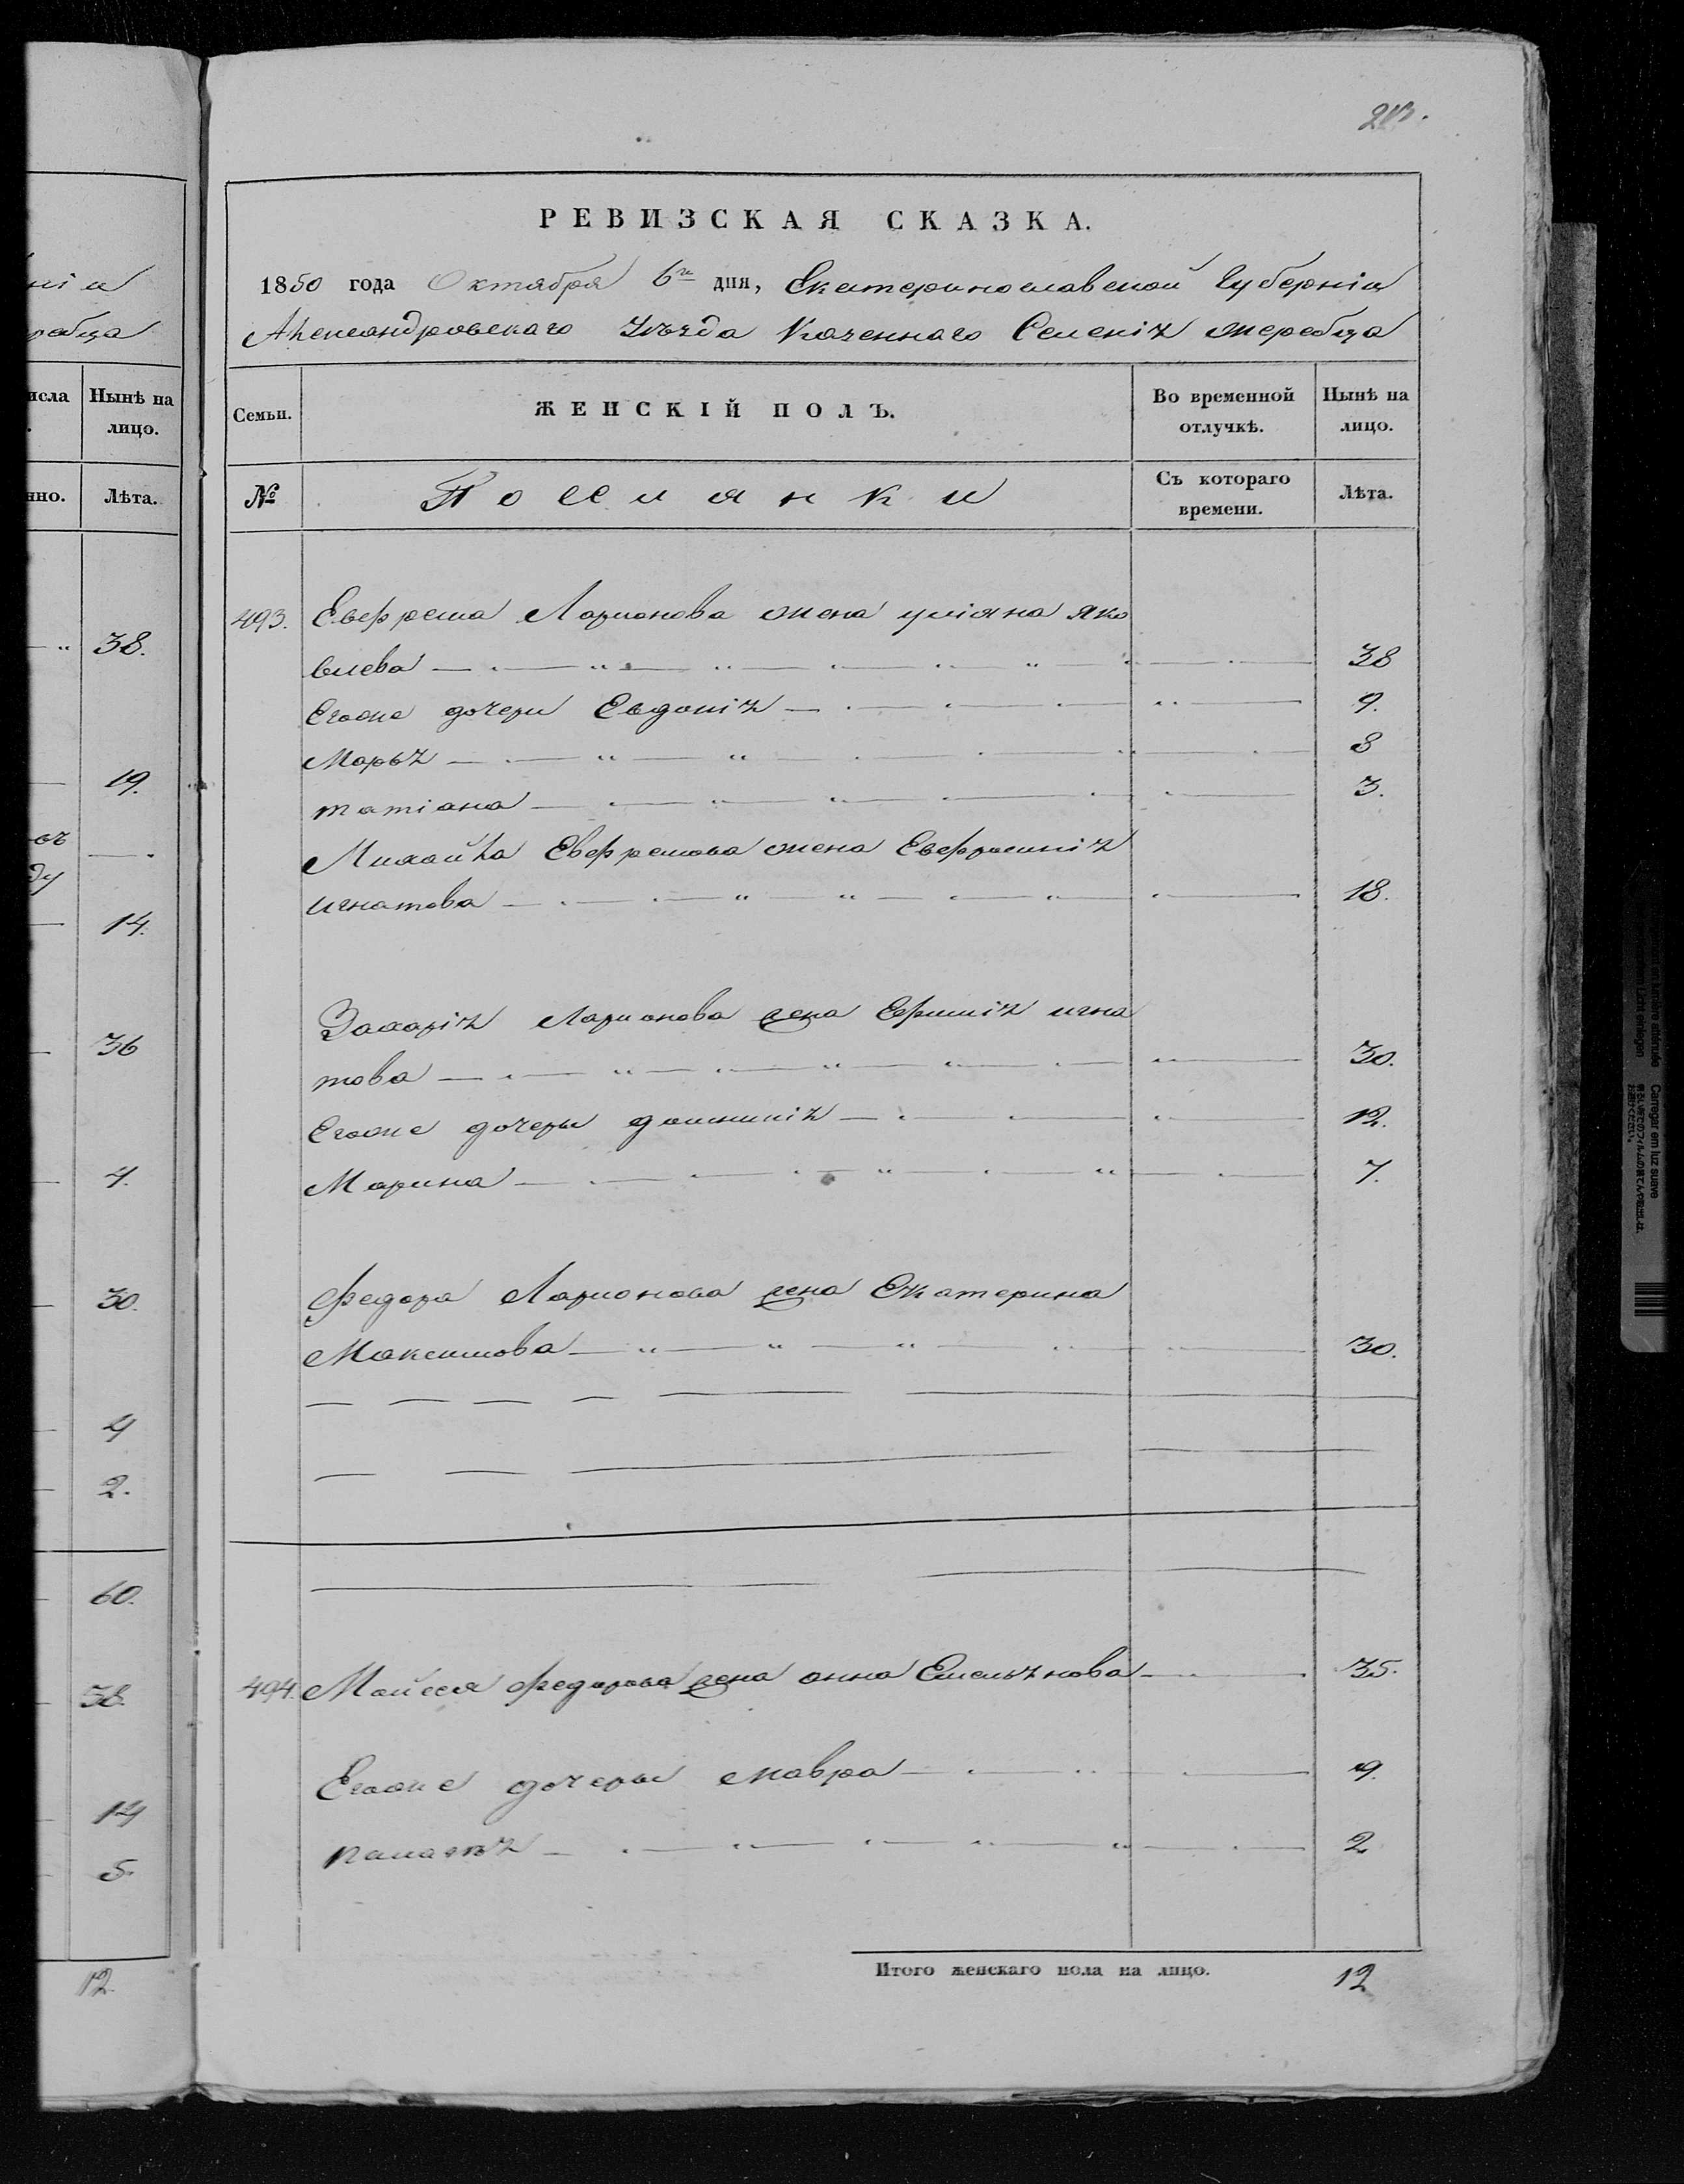 213.
РЕВИЗСКАЯ СКАЗКА.
1850 года Октября 6го дня, Екатеринославской Губерніи
Александровскаго Уѣзда Казеннаго Селенія жеребца
Семьи.
ЖЕНСКІЙ ПОЛЪ.
Во временной отлучкѣ.
Нынѣ на лицо.
№
Поселянки
Съ котораго времени.
Лѣта.
493. Евфрема Ларионова жена уліяна яко
влева 38
Егоже дочери Евдокія 9.
Марья 8
татіана 3.
Михайла Евфремова жена Евфросинія
игнатова 18.
Захарія Ларионова жена Ефимія игна
това 30.
Егоже дочери домникія 12.
Марина 7.
Федора Ларионова жена Екатерина
Максимова 30.
494. Мойсея Федорова жена анна Емельянова 35.
Егоже дочери мавра 9.
пелагея 2
Итого женскаго пола на лицо. 12
ніи
ребца
исла
Нынѣ на лицо.
нно.
Лѣта.
38.
19.
14.
36
4.
30.
4
2.
60.
38.
14
5.
12.